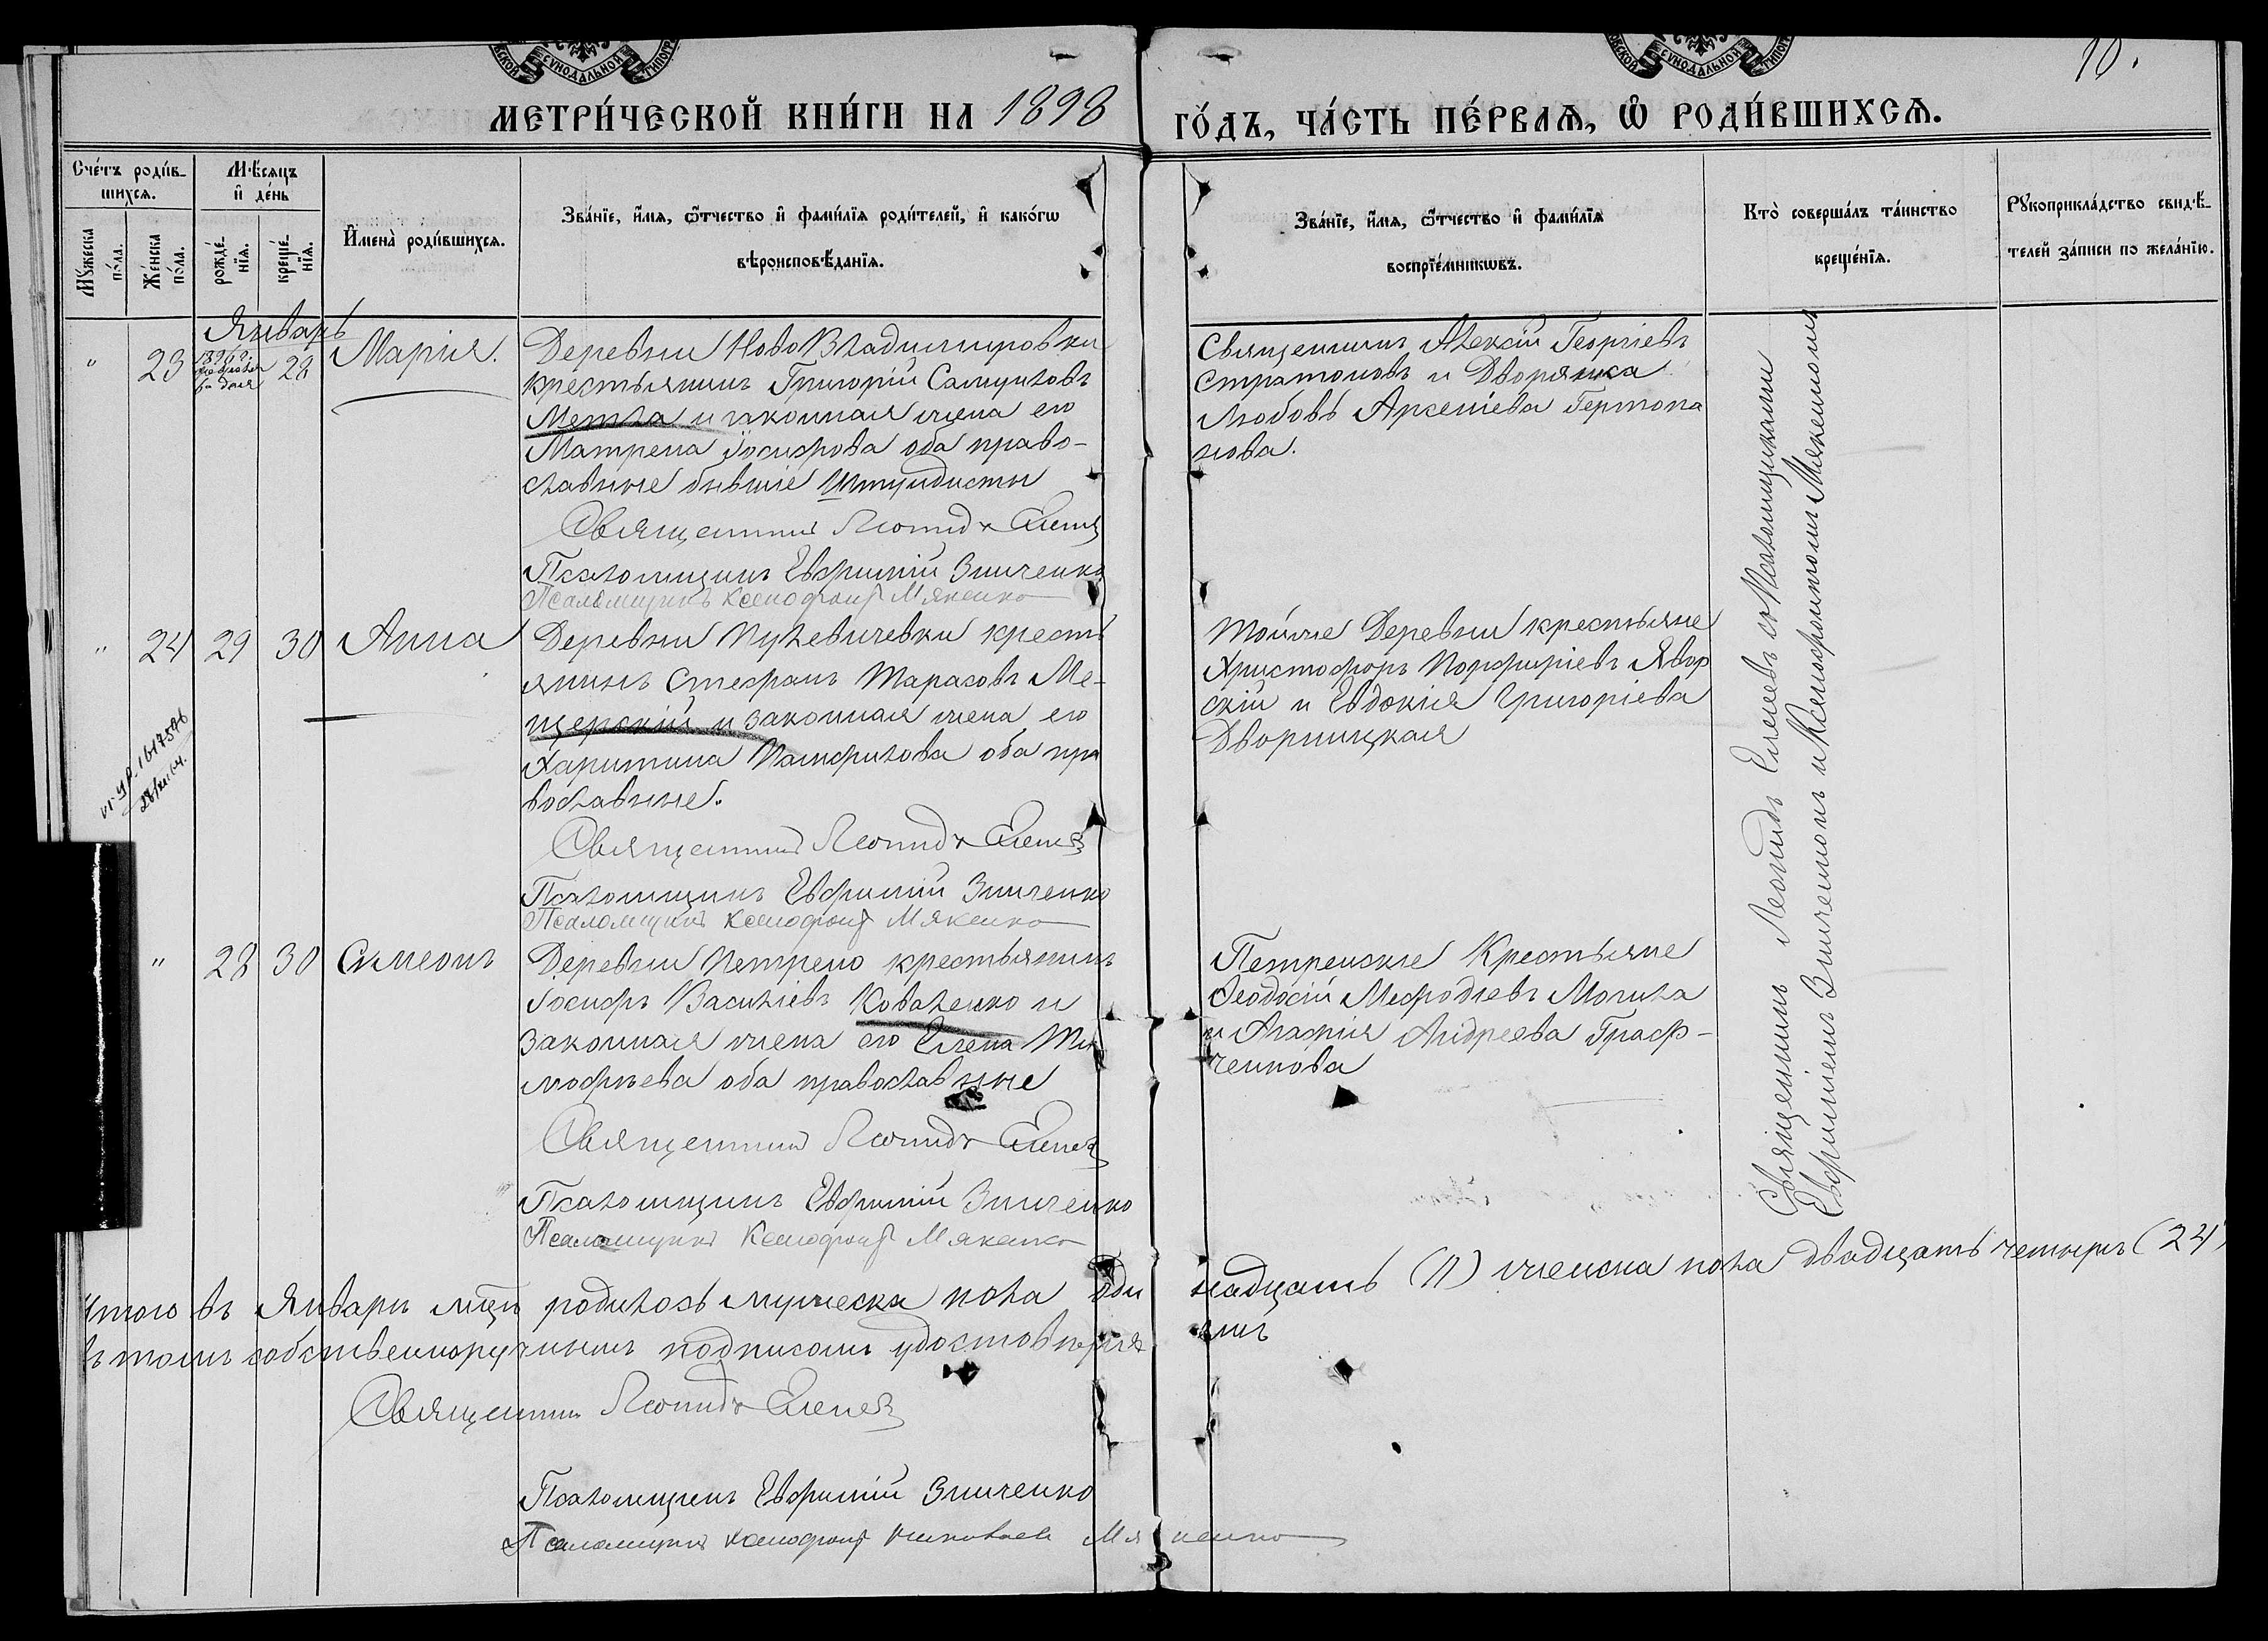 10.
МЕТРИ́ЧЕСКОЙ КНИ́ГИ НА 1898 ГО́ДЪ, ЧА́СТЬ ПЕ́РВАѦ, Ѡ҆ РОДИ́ВШИХСѦ.
Сче́тъ роди́в-
шихсѧ.
Мꙋ́жеска
по́ла.
Же́нска
по́ла.
Мѣ́сѧцъ
и҆ де́нь
рожде́-
нїѧ.
креще́-
нїѧ.
И҆мена̀ роди́вшихсѧ.
Зва́нїе, и҆́мѧ, ѻ҆́тчество и҆ фами́лїѧ роди́телей, и҆ како́гѡ
вѣроисповѣ́данїѧ.
Зва́нїе, и҆́мѧ, ѻ҆́тчество и҆ фами́лїѧ
воспрїе́мникѡвъ.
Кто̀ соверша́лъ та́инство
креще́нїѧ.
Рꙋкоприкла́дство свидѣ́-
телей за́писи по жела́нїю.
Январь
" 23 28 Марія.
Деревни НовоВладимировки
крестьянинъ Григорій Самуиловъ
Метла и законная жена его
Матрена Іосифова оба право-
славные бывшіе Штундисты
Священникъ Леонидъ Еленевъ
Псаломщикъ Евфимій Зинченко
Псаломщикъ Ксенофонтъ Мякенко
Священникъ Алексій Георгіевъ
Стратоновъ и Дворянка
Любовь Арсеніева Гертопа
нова.
" 24 29 30 Анна
Деревни Пулевичевки кресть
янинъ Стефанъ Тарасовъ Ме-
щерскій и законная жена его
Харитина Памфилова оба пра
вославные.
Священникъ Леонидъ Еленевъ
Псаломщикъ Евфимій Зинченко
Псаломщикъ Ксенофонтъ Мякенко
Тойже Деревни крестьяне
Христофоръ Порфиріевъ Явор
скій и Евдокія Григоріева
Дворницкая
" 28 30 Симеонъ
Деревни Петрено крестьянинъ
Іосифъ Василіевъ Коваленко и
законная жена его Елена Ти
мофѣева оба православные
Священникъ Леонидъ Еленевъ
Псаломщикъ Евфимій Зинченко
Псаломщикъ Ксенофонтъ Мякенко
Петренскіе Крестьяне
Ѳеодосій Мефодіевъ Могила
и Агафія Андреева Граф-
ченкова
Священникъ Леонидъ Еленевъ со Псаломщиками
Евфиміемъ Зинченкомъ и Ксенофонтомъ Мякенкомъ
Итого въ Январѣ мцѣ родилось мужеска пола оди надцать (11) женска пола двадцать четыре (24)
въ томъ собственноручнымъ подписомъ удостовѣряемъ
Священникъ Леонидъ Еленевъ
Псаломщикъ Евфимій Зинченко
Псаломщикъ Ксенофонтъ Мякенко